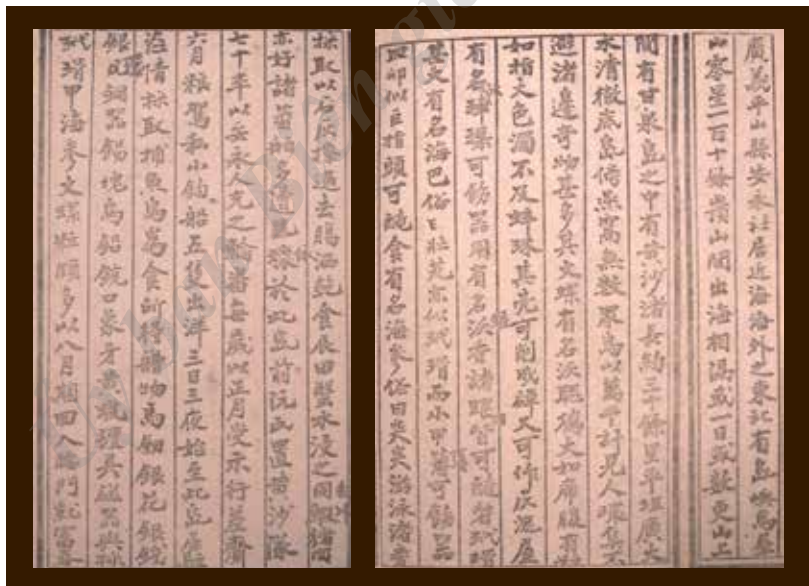 廣義平山縣安永社居近海海外之東北有島嶼焉羣
山零星一百十餘嶺山間出海相隔或一日或數更山上
間有甘泉島之中有黃沙渚長約三十餘里平坦廣大
水清徹底島傍燕窩無數眾鳥以萬千計見人環集不
避渚邊奇物甚多其文螺有名沃聰瑀大如席腹有粒
如指大色濁不及蚌珠其亮可削成碑又可作灰泥屋
有名硨磲可飾器用有名沃香諸螺皆可醃煮玳瑁
甚大有名海巴俗曰壯芃亦似玳瑁而小甲薄可飾器
皿卵似巨指頭可醃食有名海參俗曰突突游泳渚旁
採取以石灰擦過去腸洒乾食辰田蟹水浸之同蝦豬肉
亦好諸蕃舶多遭風壞於此島前阮氏置黃沙隊
七十率以安永人充之輪番每歲以正月受示行差齎
六月粮駕私小釣船五隻出洋三日三夜始至此島居駐
恣情採取捕魚鳥為食所得艚物馬劔銀花銀錢
銀環銅器錫塊烏鉛銃口象牙黃蠟氈具磁器與採
玳瑁甲海參文螺粒頗多以八月期回入腰門就富春